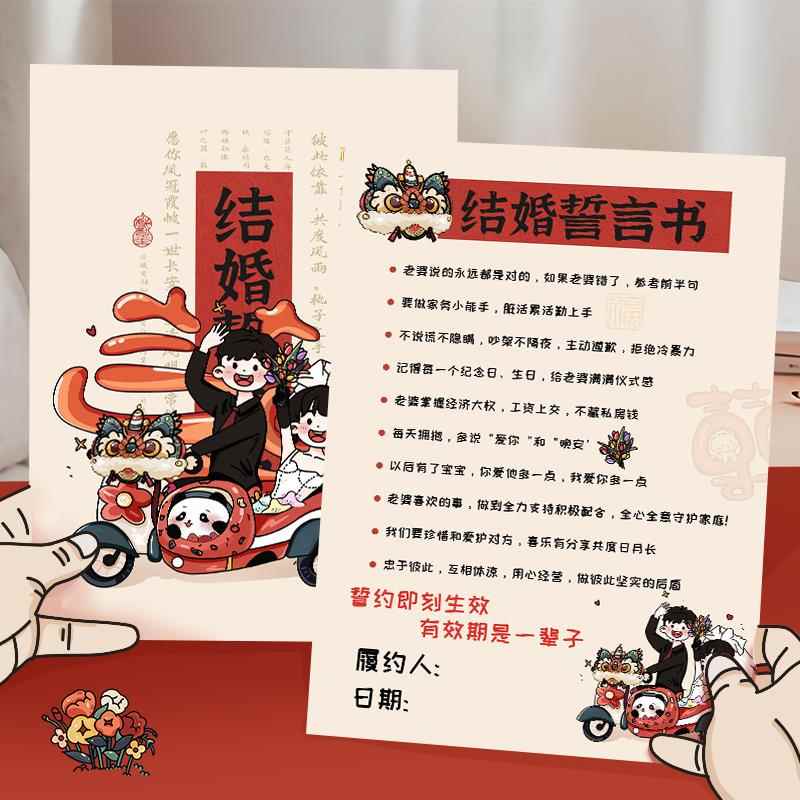 愿你凤冠霞帔一世长安
彼此依靠，共度风雨，执子
结婚
结婚誓言书
老婆说的永远都是对的，如果老婆错了，参考前半句
要做家务小能手，脏活累活勤上手
不说谎不隐瞒，吵架不隔夜，主动道歉，拒绝冷暴力
记得每一个纪念日、生日，给老婆满满仪式感
老婆掌握经济大权，工资上交，不藏私房钱
每天拥抱，多说“爱你“和“晚安’
以后有了宝宝，你爱他多一点，我爱你多一点
老婆喜欢的事，做到全力支持积极配合，全心全意守护家庭!
我们要珍惜和爱护对方，喜乐有分享共度日月长
忠于彼此，互相体谅，用心经营，做彼此坚实的后盾
誓约即刻生效
有效期是一辈子
履约人:
日期:
福
囍